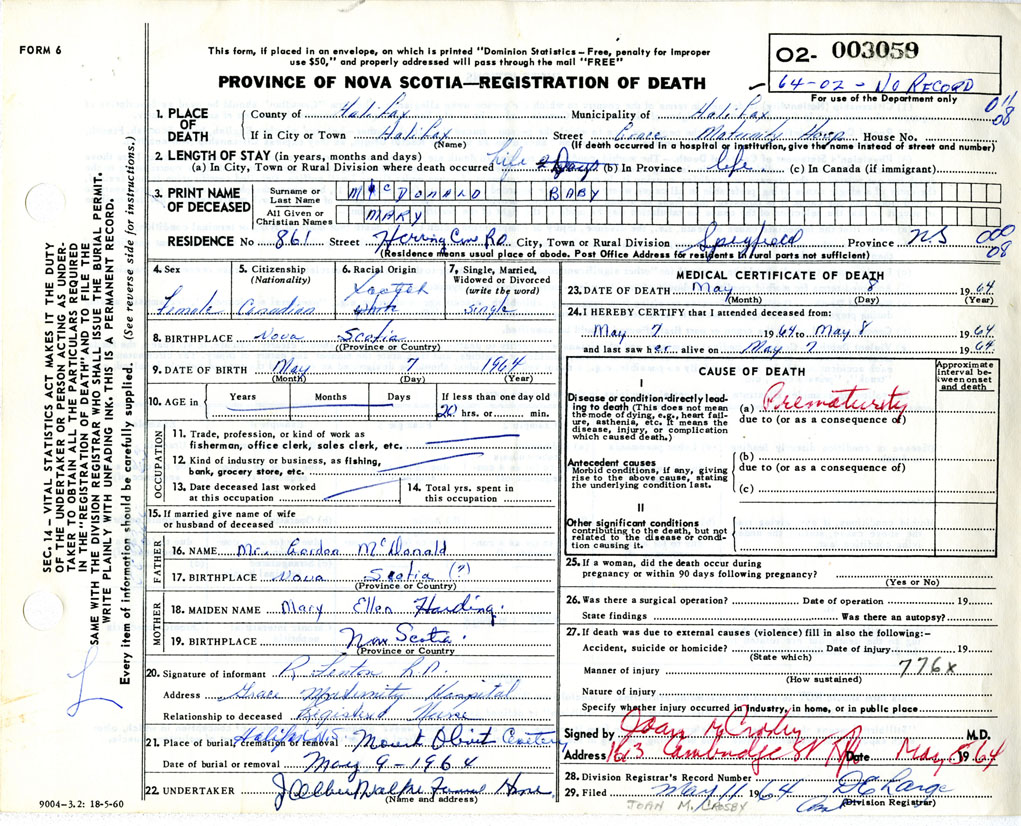 FORM 6
This form, if placed in an envelope, on which is printed "Dominion Statistics – Free, penalty for improper
use $50," and properly addressed will pass through the mail "FREE"
PROVINCE OF NOVA SCOTIA—REGISTRATION OF DEATH
02- 003059
64-02 - No RECORD
For use of the Department only
011
08
1. PLACE OF DEATH
County of Halifax Municipality of Halifax
If in City or Town Halifax Street Grace Maturnity Hosp House No.
(Name) (If death occurred in a hospital or institution, give the name instead of street and number)
2. LENGTH OF STAY (in years, months and days)
(a) In City, Town or Rural Division where death occurred Life Days (b) In Province life (c) In Canada (if immigrant)
3. PRINT NAME OF DECEASED
Surname or Last Name McDONALD BABY
All Given or Christian Names MARY
RESIDENCE No 861 Street Herring Cove RD. City, Town or Rural Division Spryfield Province N.S
(Residence means usual place of abode. Post Office Address for residents in rural parts not sufficient)
000
08
4. Sex Female
5. Citizenship (Nationality) Canadian
6. Racial Origin Scotch White
7. Single, Married, Widowed or Divorced (write the word) Single
8. BIRTHPLACE Nova Scotia
(Province or Country)
9. DATE OF BIRTH May 7 1964
(Month) (Day) (Year)
10. AGE in Years Months Days If less than one day old
20 hrs. or min.
OCCUPATION
11. Trade, profession, or kind of work as
fisherman, office clerk, sales clerk, etc.
12. Kind of industry or business, as fishing,
bank, grocery store, etc.
13. Date deceased last worked
at this occupation
14. Total yrs. spent in
this occupation
15. If married give name of wife
or husband of deceased
FATHER
16. NAME Mr. Gordon McDonald
17. BIRTHPLACE Nova Scotia (?)
(Province or Country)
MOTHER
18. MAIDEN NAME Mary Ellen Harding.
19. BIRTHPLACE Nova Scotia.
(Province or Country
20. Signature of informant R. Fenton R.N.
Address Grace Maternity Hospital
Relationship to deceased Registered Nurse
21. Place of burial, cremation or removal Halifax N.S Mount Olivet Cemetery
Date of burial or removal May 9 - 1964
22. UNDERTAKER J Albert Walker Funeral Home
(Name and address)
9004-3.2: 18-5-60
MEDICAL CERTIFICATE OF DEATH
23. DATE OF DEATH May 8 1964
(Month) (Day) (Year)
24. I HEREBY CERTIFY that I attended deceased from:
May 7 1964 to May 8 1964
and last saw her alive on May 7 1964
CAUSE OF DEATH
Approximate interval between onset and death
I
Disease or condition directly leading to death (This does not
mean the mode of dying, e.g., heart failure, asthenia, etc. It means the
disease, injury, or complication which caused death.)
(a) Prematurity
due to (or as a consequence of)
Antecedent causes
Morbid conditions, if any, giving
rise to the above cause, stating
the underlying condition last.
(b)
due to (or as a consequence of)
(c)
II
Other significant conditions
contributing to the death, but not
related to the disease or condition
causing it.
25. If a woman, did the death occur during
pregnancy or within 90 days following pregnancy?
(Yes or No)
26. Was there a surgical operation? Date of operation 19
State findings Was there an autopsy?
27. If death was due to external causes (violence) fill in also the following:–
Accident, suicide or homicide? Date of injury 19
(State which)
Manner of injury 776x
(How sustained)
Nature of injury
Specify whether injury occurred in industry, in home, or in public place
Signed by Joan M Crosby M.D.
Address 1663 Cambridge St Hfx Date May 8 1964
28. Division Registrar's Record Number
29. Filed May 11 1964
(Division Registrar)
JOAN M. CROSBY
SEC. 14 – VITAL STATISTICS ACT MAKES IT THE DUTY
OF THE UNDERTAKER OR PERSON ACTING AS UNDERTAKER
TO OBTAIN ALL THE PARTICULARS REQUIRED
IN THE "REGISTRATION OF DEATH" AND TO FILE THE
SAME WITH THE DIVISION REGISTRAR WHO SHALL ISSUE THE BURIAL PERMIT.
WRITE PLAINLY WITH UNFADING INK. THIS IS A PERMANENT RECORD.
Every item of information should be carefully supplied. (See reverse side for instructions.)